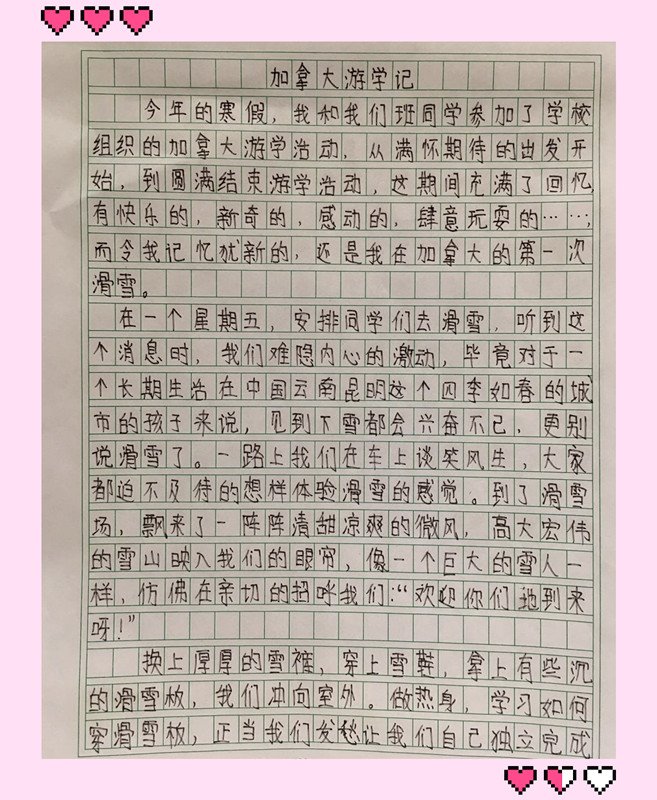 加拿大游学记
今年的寒假，我和我们班同学参加了学校
组织的加拿大游学活动，从满怀期待的出发开
始，到圆满结束游学活动，这期间充满了回忆，
有快乐的，新奇的，感动的，肆意玩耍的……，
而令我记忆犹新的，还是我在加拿大的第一次
滑雪。
在一个星期五，安排同学们去滑雪，听到这
个消息时，我们难隐内心的激动，毕竟对于一
个长期生活在中国云南昆明这个四季如春的城
市的孩子来说，见到下雪都会兴奋不已，更别
说滑雪了。一路上我们在车上谈笑风生，大家
都迫不及待的想样体验滑雪的感觉。到了滑雪
场，飘来了一阵阵清甜凉爽的微风，高大宏伟
的雪山映入我们的眼帘，像一个巨大的雪人一
样，仿佛在亲切的招呼我们：“欢迎你们地到来
呀！”
换上厚厚的雪裤，穿上雪鞋，拿上有些沉
的滑雪板，我们冲向室外。做热身，学习如何
穿滑雪板，正当我们发愁让我们自己独立完成